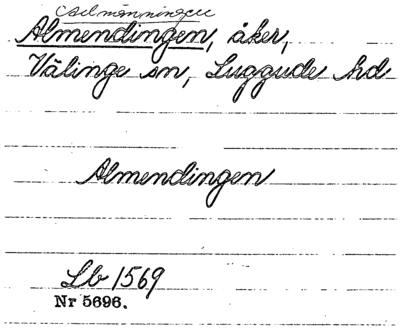 Allmänningen
Almendingen, åker,
Välinge sn, Luggude hd
Almendingen
Lb 1569
Nr 5696.